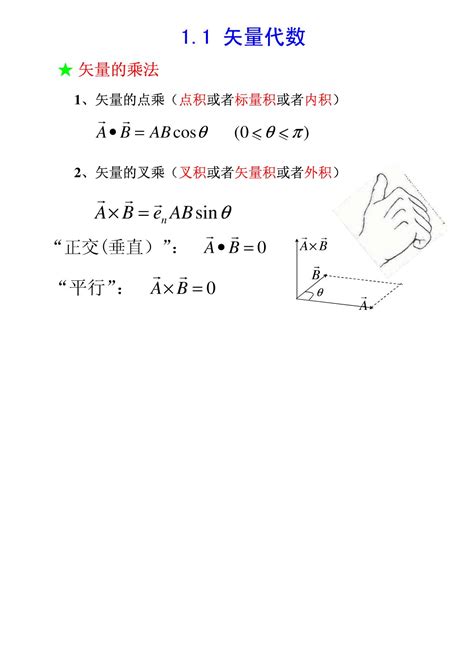 1.1 矢量代数
★ 矢量的乘法
1、矢量的点乘（点积或者标量积或者内积）
$\vec{A} \bullet \vec{B} = AB\cos\theta \quad (0 \leqslant \theta \leqslant \pi)$
2、矢量的叉乘（叉积或者矢量积或者外积）
$\vec{A} \times \vec{B} = \vec{e}_n AB\sin\theta$
“正交(垂直）”： $\vec{A} \bullet \vec{B} = 0$
“平行”： $\vec{A} \times \vec{B} = 0$
$\vec{A} \times \vec{B}$
$\vec{B}$
$\theta$
$\vec{A}$